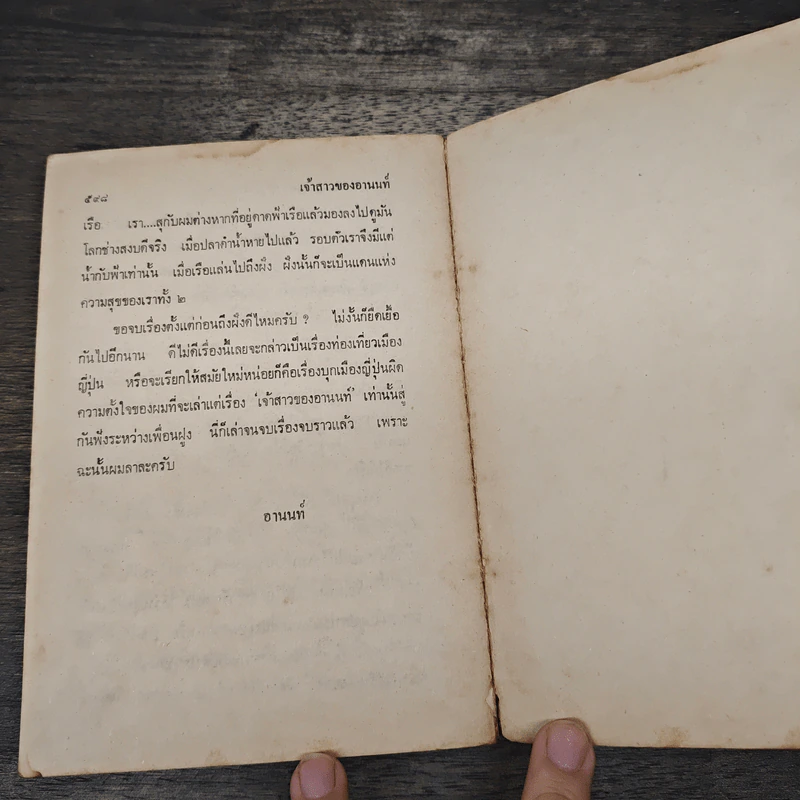 ๕๙๘ เจ้าสาวของอานนท์
เรือ เรา....สุกับผมต่างหากที่อยู่ดาดฟ้าเรือแล้วมองลงไปดูมัน
โลกช่างสงบดีจริง เมื่อปลาดำน้ำหายไปแล้ว รอบตัวเราจึงมีแต่
น้ำกับฟ้าเท่านั้น เมื่อเรือแล่นไปถึงฝั่ง ฝั่งนั้นก็จะเป็นแดนแห่ง
ความสุขของเราทั้ง ๒
ขอจบเรื่องตั้งแต่ก่อนถึงฝั่งดีไหมครับ ? ไม่งั้นก็ยืดเยื้อ
กันไปอีกนาน ดีไม่ดีเรื่องนี้เลยจะกล่าวเป็นเรื่องท่องเที่ยวเมือง
ญี่ปุ่น หรือจะเรียกให้สมัยใหม่หน่อยก็คือเรื่องบุกเมืองญี่ปุ่นผิด
ความตั้งใจของผมที่จะเล่าแค่เรื่อง ‘เจ้าสาวของอานนท์’ เท่านั้นสู่
กันฟังระหว่างเพื่อนฝูง นี่ก็เล่าจนจบเรื่องจบราวแล้ว เพราะ
ฉะนั้นผมลาละครับ
อานนท์